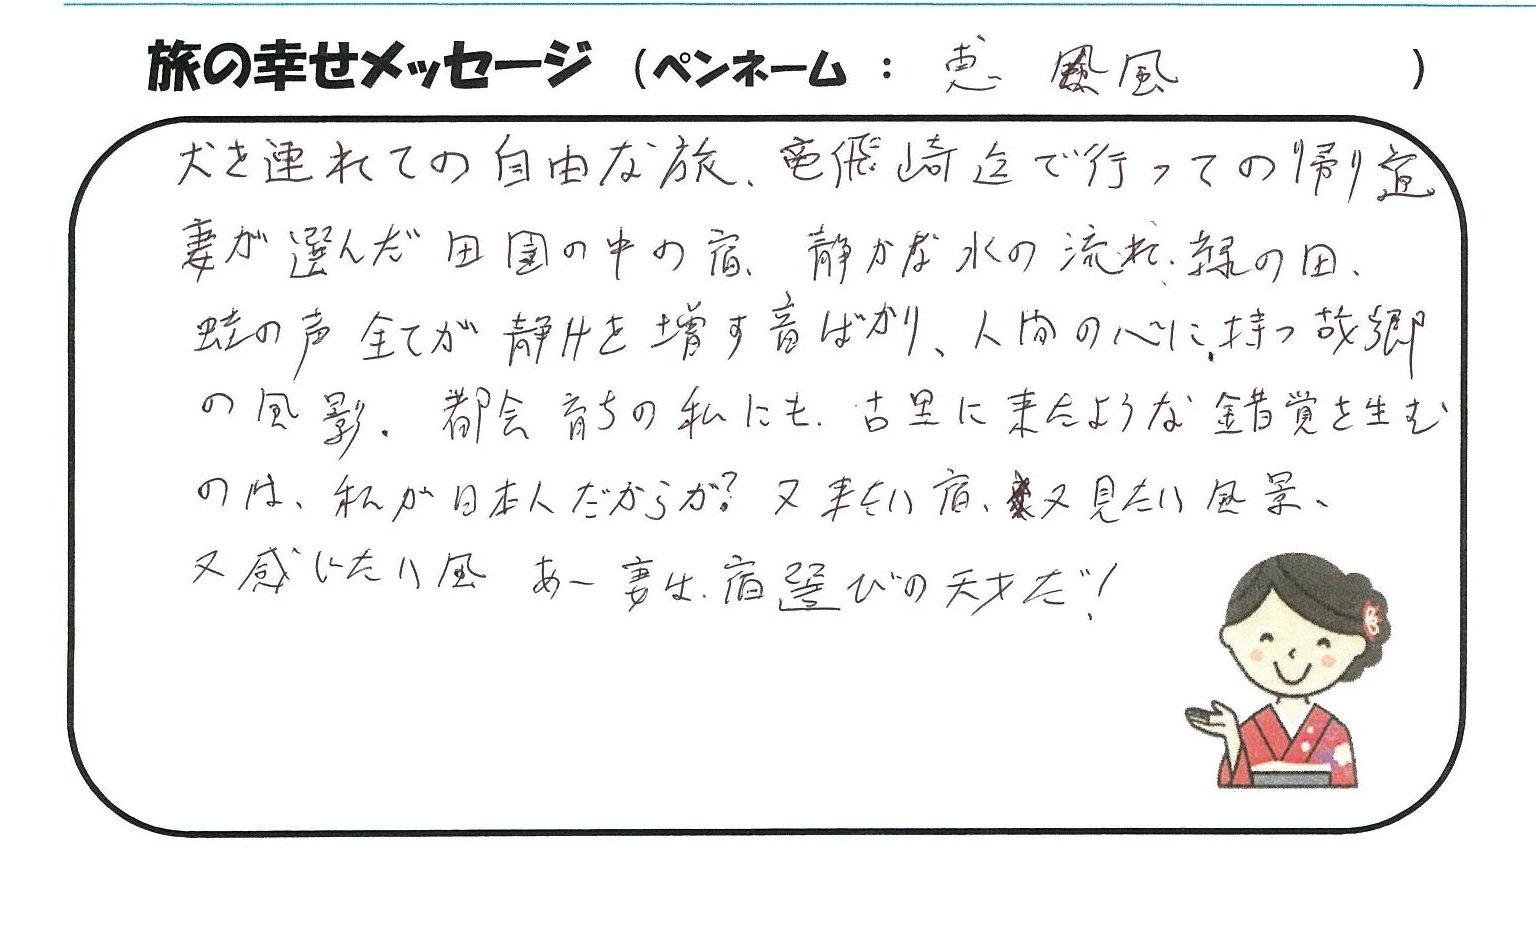 旅の幸せメッセージ (ペンネーム : 恵 風 )
犬を連れての自由な旅、竜飛崎迄で行っての帰り道
妻が選んだ田園の中の宿、静かな水の流れ、緑の田、
蛙の声全てが静けさを増す音ばかり、人間の心に持つ故郷
の風影。都会育ちの私にも、古里に来たような錯覚を生む
のは、私が日本人だからか?又来たい宿、又見たい風景、
又感じたい風 あー妻は、宿選びの天才だ!